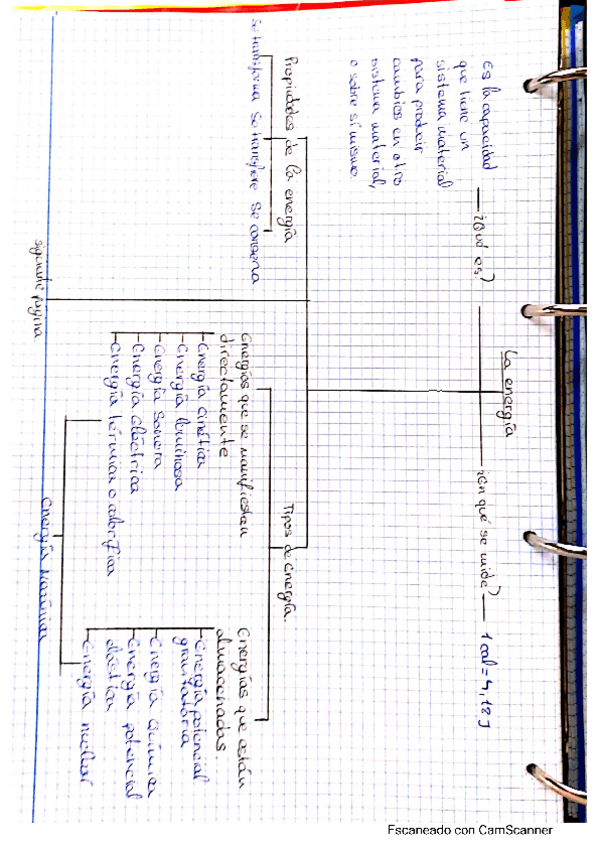 La energía
¿Qué es?
Es la capacidad
que tiene un
sistema material
para producir
cambios en otro
sistema material,
o sobre sí mismo.
¿En qué se mide?
1 cal = 4,18 J
Propiedades de la energía
Se transforma Se transfiere Se conserva
Tipos de energía.
Energías que se manifiestan
directamente
Energía cinética
Energía luminosa
Energía sonora
Energía eléctrica
Energía térmica o calorífica
Energías que están
almacenadas.
Energía potencial
gravitatoria
Energía química
Energía potencial
elástica
Energía nuclear
Energía Mecánica
siguiente página
Escaneado con CamScanner